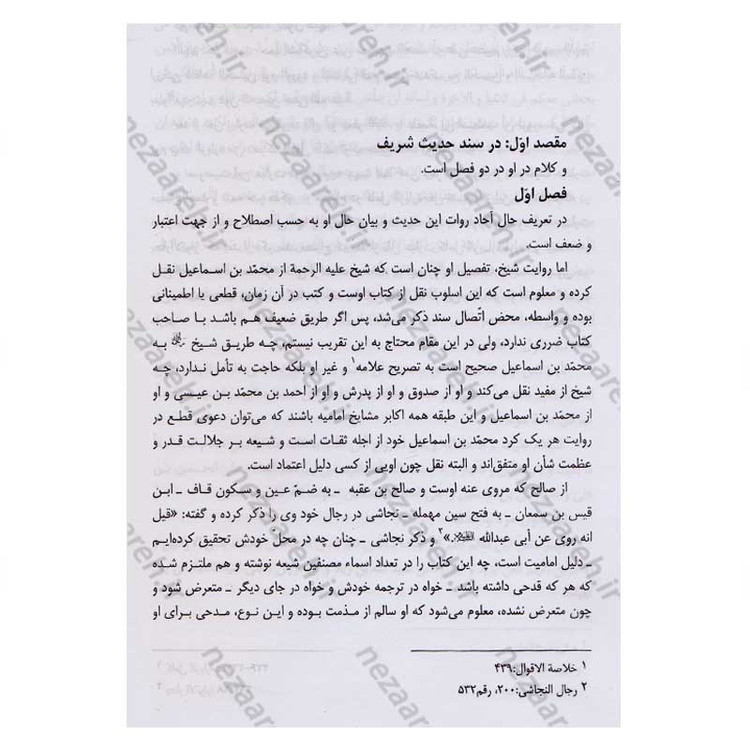 مقصد اوّل: در سند حدیث شریف
و کلام در او در دو فصل است.
فصل اوّل
در تعریف حال آحاد روات این حدیث و بیان حال او به حسب اصطلاح و از جهت اعتبار
و ضعف است.
اما روایت شیخ، تفصیل او چنان است که شیخ علیه الرحمة از محمّد بن اسماعیل نقل
کرده و معلوم است که این اسلوب نقل از کتاب اوست و کتب در آن زمان، قطعی یا اطمینانی
بوده و واسطه، محض اتّصال سند ذکر می‌شد، پس اگر طریق ضعیف هم باشد با صاحب
کتاب ضرری ندارد، ولی در این مقام محتاج به این تقریب نیستم، چه طریق شیخ به
محمّد بن اسماعیل صحیح است به تصریح علامه۱ و غیر او بلکه حاجت به تأمل ندارد، چه
شیخ از مفید نقل می‌کند و او از صدوق و او از پدرش و او از احمد بن محمّد بن عیسی و او
از محمّد بن اسماعیل و این طبقه همه اکابر مشایخ امامیه باشند که می‌توان دعوی قطع در
روایت هر یک کرد محمّد بن اسماعیل خود از اجله ثقات است و شیعه بر جلالت قدر و
عظمت شأن او متفق‌اند و البته نقل چون اویی از کسی دلیل اعتماد است.
از صالح که مروی عنه اوست و صالح بن عقبه ـ به ضمّ عین و سکون قاف ـ ابن
قیس بن سمعان ـ به فتح سین مهمله ـ نجاشی در رجال خود وی را ذکر کرده و گفته: «قیل
انه روی عن أبی عبدالله .»۲ و ذکر نجاشی ـ چنان چه در محل خودش تحقیق کرده‌ایم
ـ دلیل امامیت است، چه این کتاب را در تعداد اسماء مصنفین شیعه نوشته و هم ملتزم شده
که هر که قدحی داشته باشد ـ خواه در ترجمه خودش و خواه در جای دیگر ـ متعرض شود و
چون متعرض نشده، معلوم می‌شود که او سالم از مذمت بوده و این نوع، مدحی برای او
۱ خلاصة الاقوال:۴۳۹
۲ رجال النجاشی:۲۰۰، رقم۵۳۲
nezaareh.ir